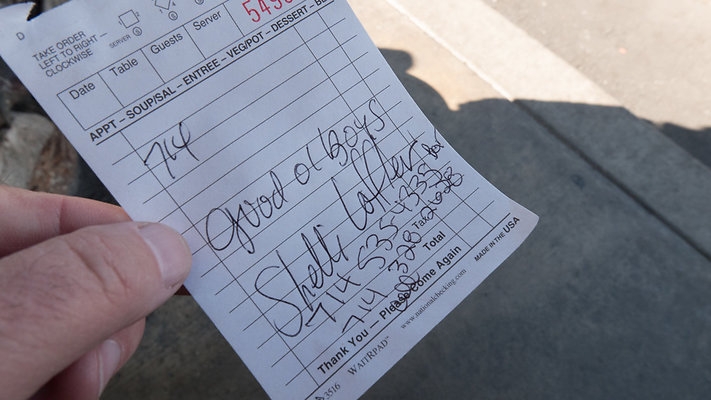 D
TAKE ORDER
LEFT TO RIGHT –
CLOCKWISE
SERVER
Date Table Guests Server
APPT – SOUP/SAL – ENTREE – VEG/POT – DESSERT –
714
good ol Boys
Shelli
714
714 328
Tax
Total
Thank You — Please Come Again
MADE IN THE USA
www.nationalchecking.com
3516 WAITRPAD™